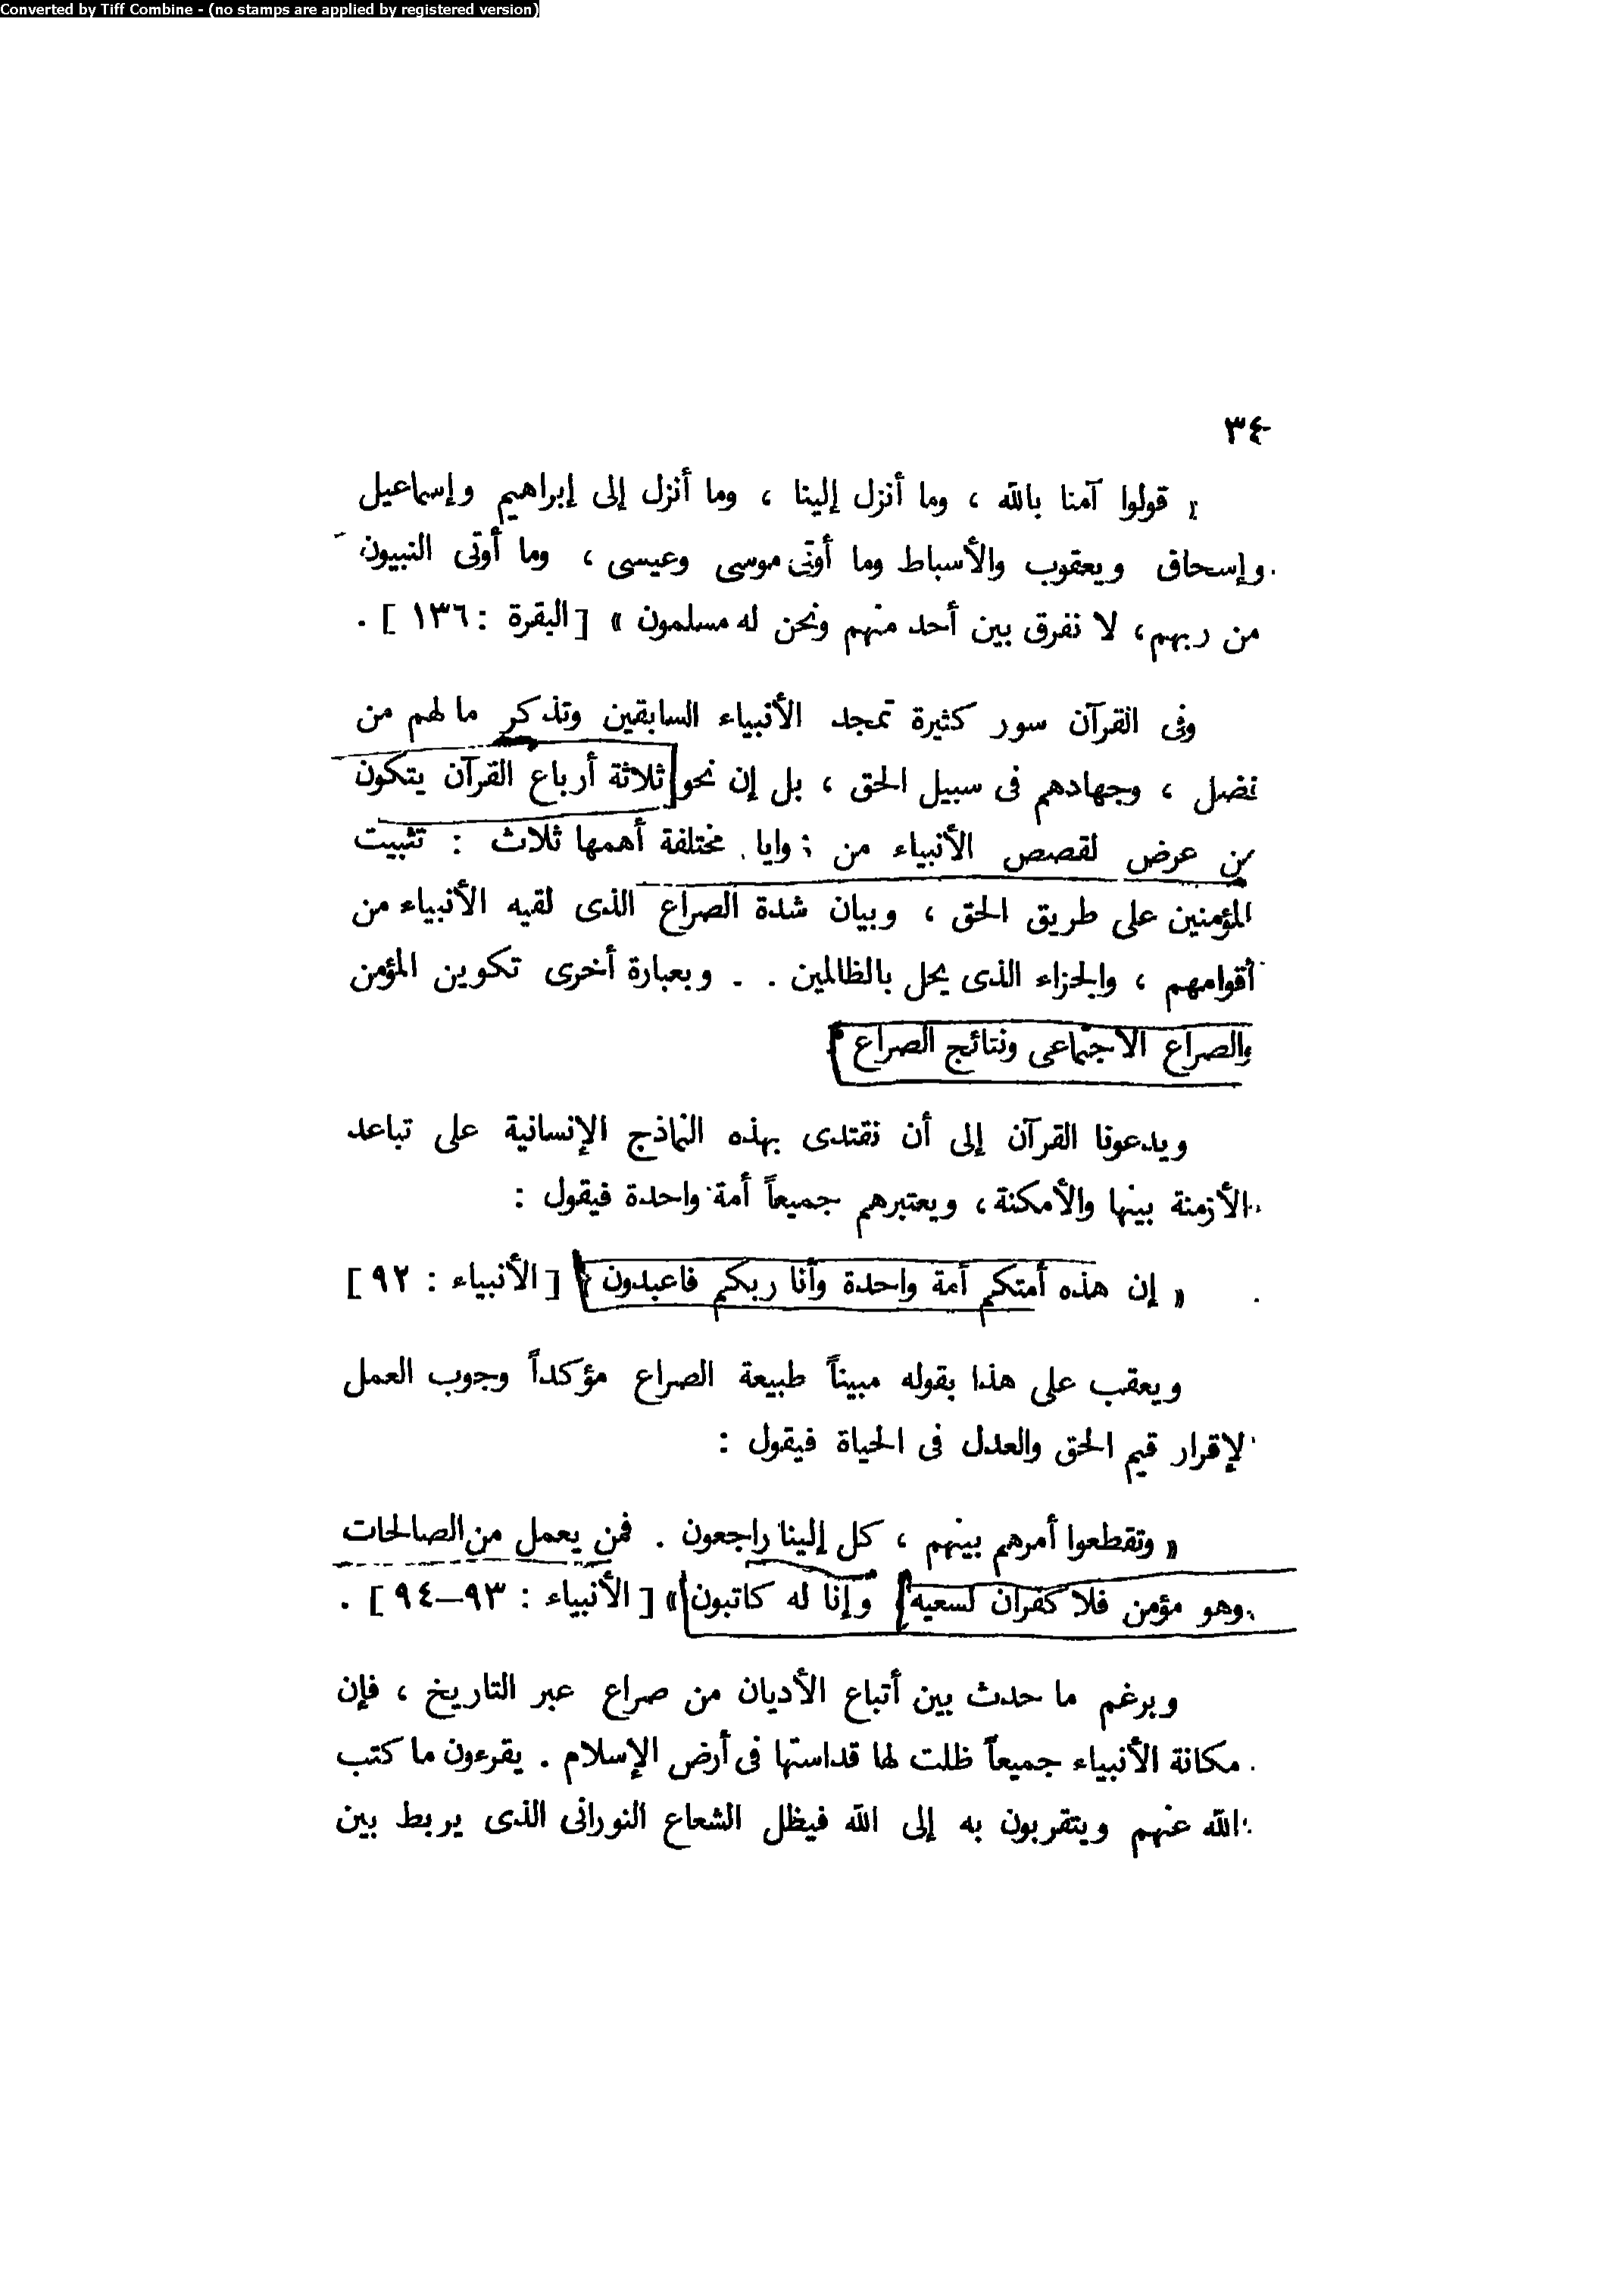 Converted by Tiff Combine - (no stamps are applied by registered version)
٣٤
« قولوا آمنا بالله ، وما أنزل إلينا ، وما أنزل إلى إبراهيم وإسماعيل
وإسحاق ويعقوب والأسباط وما أوتى موسى وعيسى ، وما أوتى النبيون
من ربهم، لا نفرق بين أحد منهم ونحن له مسلمون » [ البقرة : ١٣٦ ] .
وفى القرآن سور كثيرة تمجد الأنبياء السابقين وتذكر ما لهم من
فضل ، وجهادهم فى سبيل الحق ، بل إن نحو ثلاثة أرباع القرآن يتكون
من عرض لقصص الأنبياء من زوايا مختلفة أهمها ثلاث : تثبيت
المؤمنين على طريق الحق ، وبيان شدة الصراع الذى لقيه الأنبياء من
أقوامهم ، والجزاء الذى يحل بالظالمين . . وبعبارة أخرى تكوين المؤمن
والصراع الاجتماعى ونتائج الصراع .
ويدعونا القرآن إلى أن نقتدى بهذه النماذج الإنسانية على تباعد
الأزمنة بينها والأمكنة ، ويعتبرهم جميعاً أمة واحدة فيقول :
« إن هذه أمتكم أمة واحدة وأنا ربكم فاعبدون » [ الأنبياء : ٩٢ ]
ويعقب على هذا بقوله مبيناً طبيعة الصراع مؤكداً وجوب العمل
لإقرار قيم الحق والعدل فى الحياة فيقول :
« وتقطعوا أمرهم بينهم ، كل إلينا راجعون . فمن يعمل من الصالحات
وهو مؤمن فلا كفران لسعيه وإنا له كاتبون » [ الأنبياء : ٩٣–٩٤ ] .
وبرغم ما حدث بين أتباع الأديان من صراع عبر التاريخ ، فإن
مكانة الأنبياء جميعاً ظلت لها قداستها فى أرض الإسلام . يقرءون ما كتب
الله عنهم ويتقربون به إلى الله فيظل الشعاع النورانى الذى يربط بين